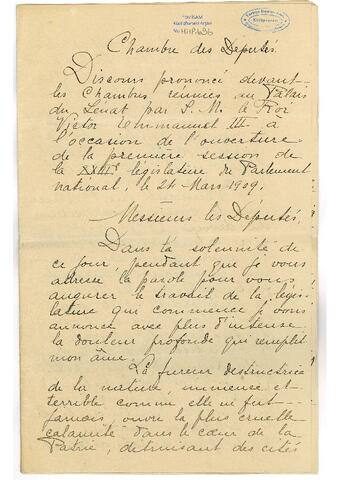 Chambre des Députés.
Discours prononcé devant
les Chambres réunies au Palais
du Sénat par S. M. le Roi
Victor Emmanuel III à
l'occasion de l'ouverture
de la première session de
la XXIIIe législature du Parlement
national, le 24 Mars 1909.
Messieurs les Députés.
Dans la solemnité de
ce jour, pendant que je vous
adresse la parole pour vous
augurer le travail de la légis-
lature qui commence, j vous
annonce avec plus d'intense
la douleur profonde qui remplit
mon âme.
La fureur destructrice
de la nature, immense et
terrible comme elle ne fut
jamais, ouvre la plus cruelle
calamité dans le cœur de la
Patrie, détruisant des cités